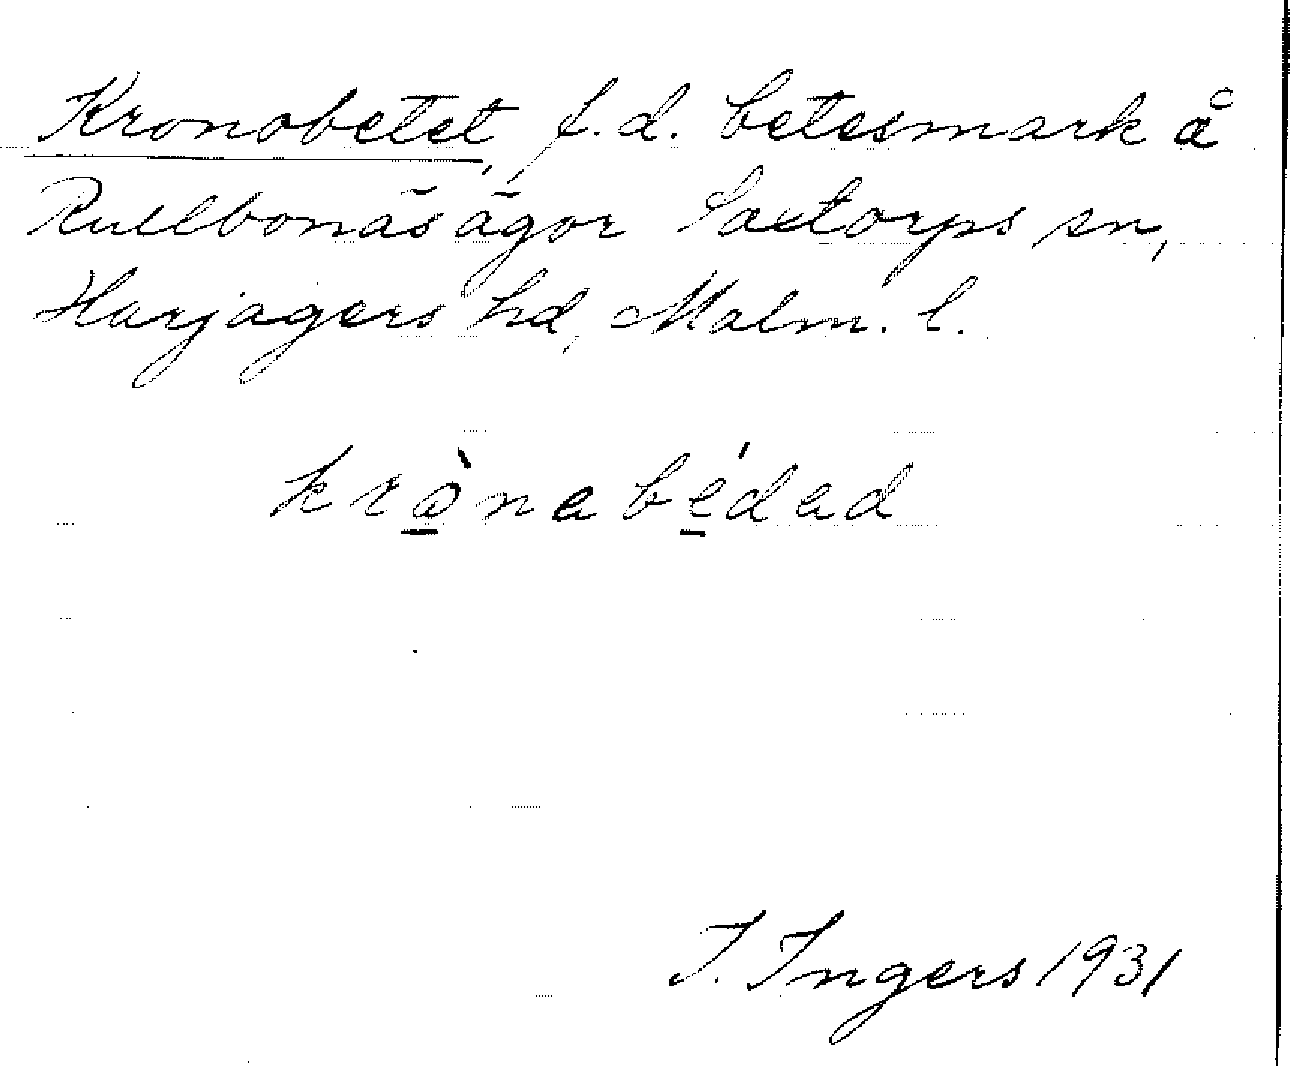 Kronobetet, f.d. betesmark å
Rullbonäs ägor Saxtorps sn,
Harjagers hd, Malm. l.
krònabédad
I. Ingers 1931